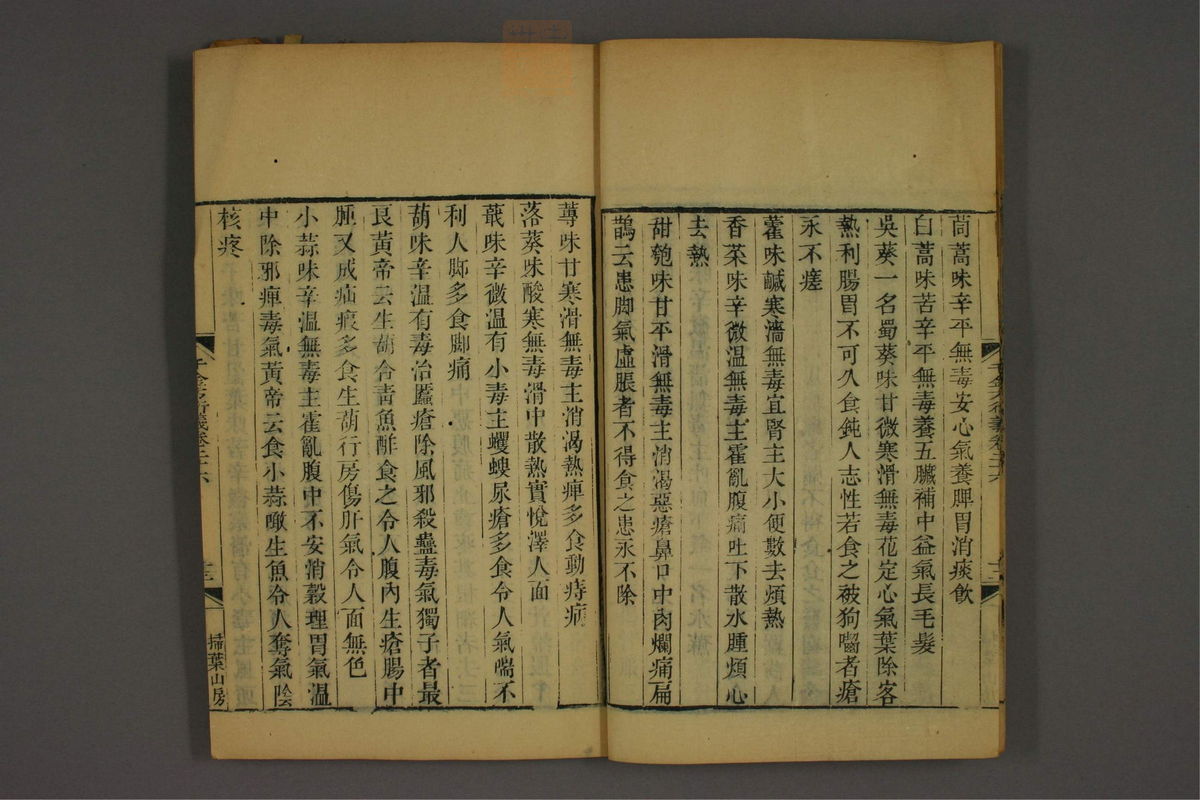 茼蒿味辛平無毒安心氣養脾胃消痰飲
白蒿味苦辛平無毒養五臟補中益氣長毛髮
吳葵一名蜀葵味甘微寒滑無毒花定心氣葉除客
熱利腸胃不可久食鈍人志性若食之被狗嚙者瘡
永不瘥
藿味鹹寒濇無毒宜腎主大小便數去煩熱
香葇味辛微溫無毒主霍亂腹痛吐下散水腫煩心
去熱
甜瓠味甘平滑無毒主消渴惡瘡鼻口中肉爛痛扁
鵲云患脚氣虛脹者不得食之患永不除
蓴味甘寒滑無毒主消渴熱痺多食動痔病
落葵味酸寒無毒滑中散熱實悅澤人面
蕺味辛微溫有小毒主蠼螋尿瘡多食令人氣喘不
利人脚多食脚痛
葫味辛溫有毒治䘌瘡除風邪殺蠱毒氣獨子者最
良黃帝云生葫合青魚酢食之令人腹內生瘡腸中
腫又成疝瘕多食生葫行房傷肝氣令人面無色
小蒜味辛溫無毒主霍亂腹中不安消穀理胃氣溫
中除邪痺毒氣黃帝云食小蒜噉生魚令人奪氣陰
核疼
千金方衍義卷二十六
掃葉山房